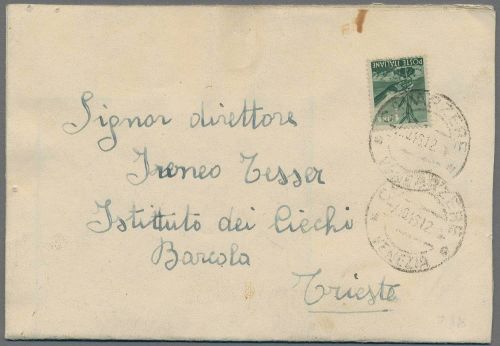 POSTE ITALIANE
Signor direttore
Ireneo Tesser
Istituto dei Ciechi
Barcola
Trieste
VENEZIA